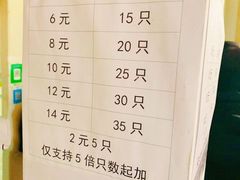 6 元 15 只
8 元 20 只
10 元 25 只
12 元 30 只
14 元 35 只
2 元 5 只
仅支持 5 倍只数起加